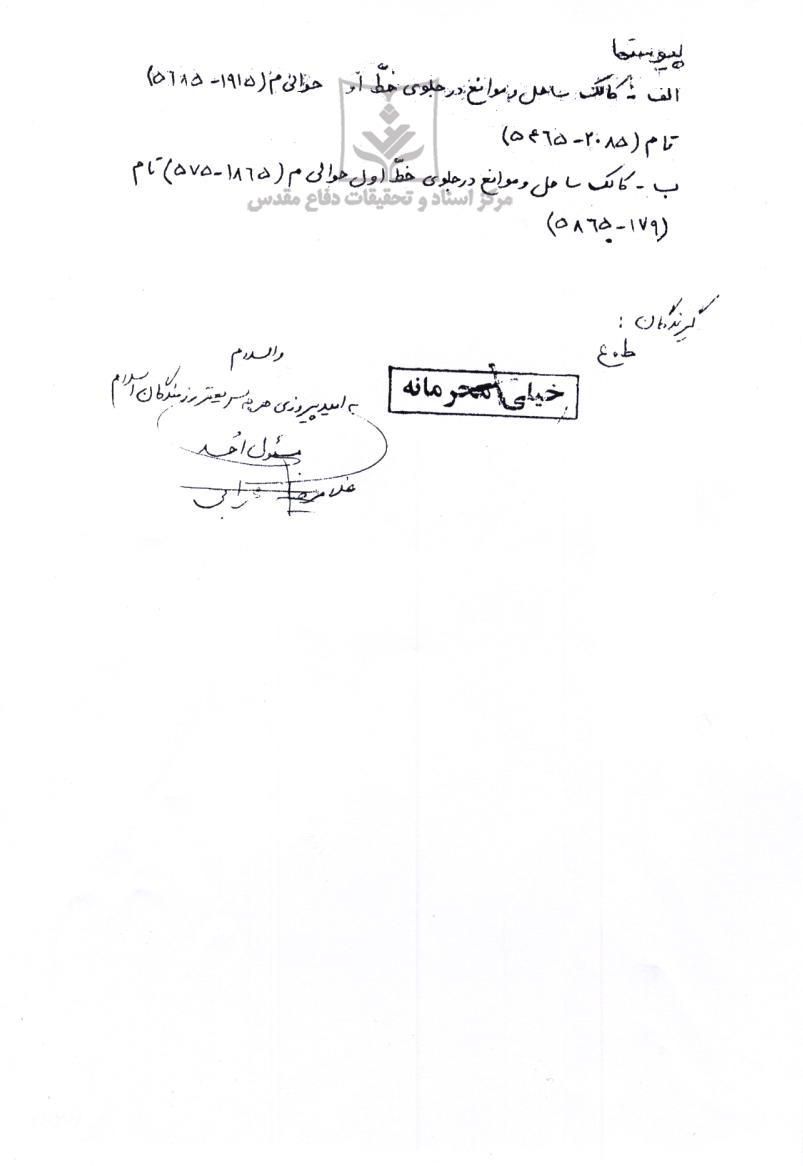 پیوستها
الف - کالک ساحل و موانع در جلوی خطّ او حوالی م (۱۹۱۵-۵۶۸۵)
تا م (۲۰۸۵-۵۴۶۵)
ب - کالک ساحل و موانع در جلوی خطّ اول حوالی م (۱۸۶۵-۵۷۵) تا م
مرکز اسناد و تحقیقات دفاع مقدس
(۱۷۹-۵۸۶۵)
گیرندگان :
ط.ع
والسلام
خیلی محرمانه
به امید پیروزی هر چه سریعتر رزمندگان اسلام
مسئول ا
غلامرضا